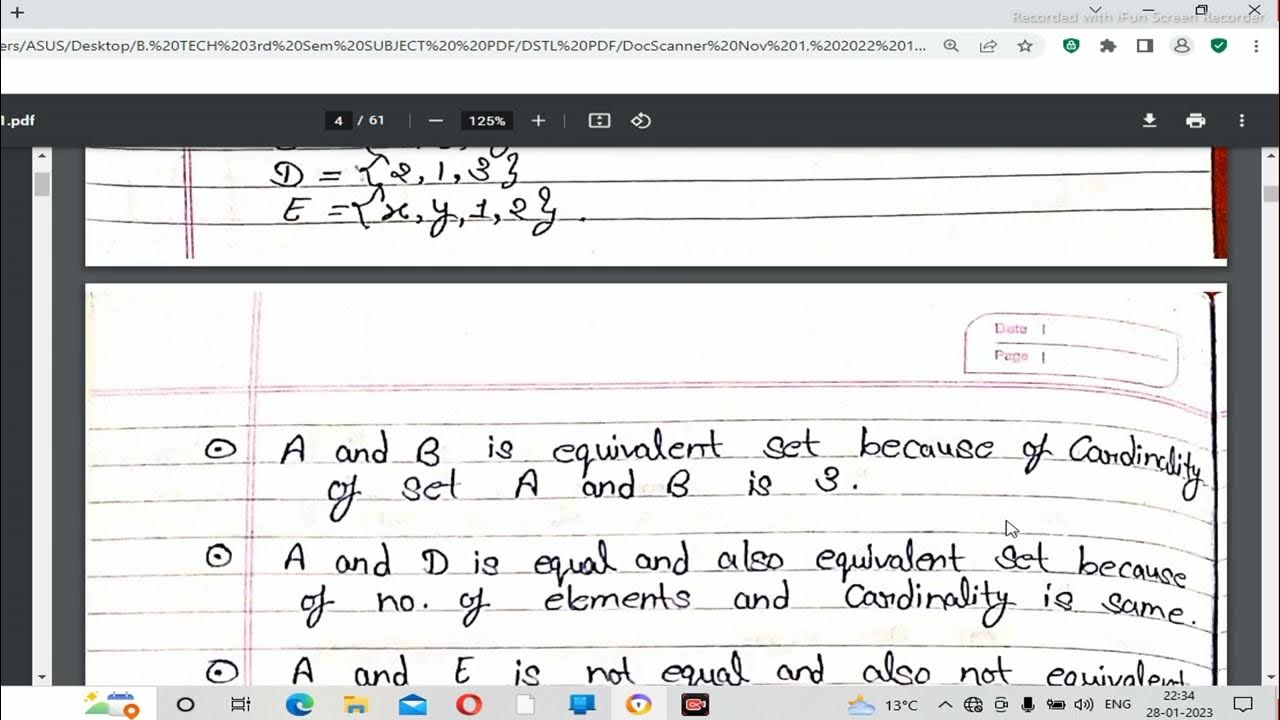 +
Recorded with iFun Screen Recorder
ers/ASUS/Desktop/B.%20TECH%203rd%20Sem%20SUBJECT%20%20PDF/DSTL%20PDF/DocScanner%20Nov%201,%202022%201...
1.pdf
4 / 61
125%
D = {2, 1, 3}
E = {x, y, 1, 2} .
Date
Page
A and B is equivalent set because of Cardinality
of set A and B is 3.
A and D is equal and also equivalent set because
of no. of elements and Cardinality is same.
A and E is not equal and also not equivalent
13°C
ENG
22:34
28-01-2023